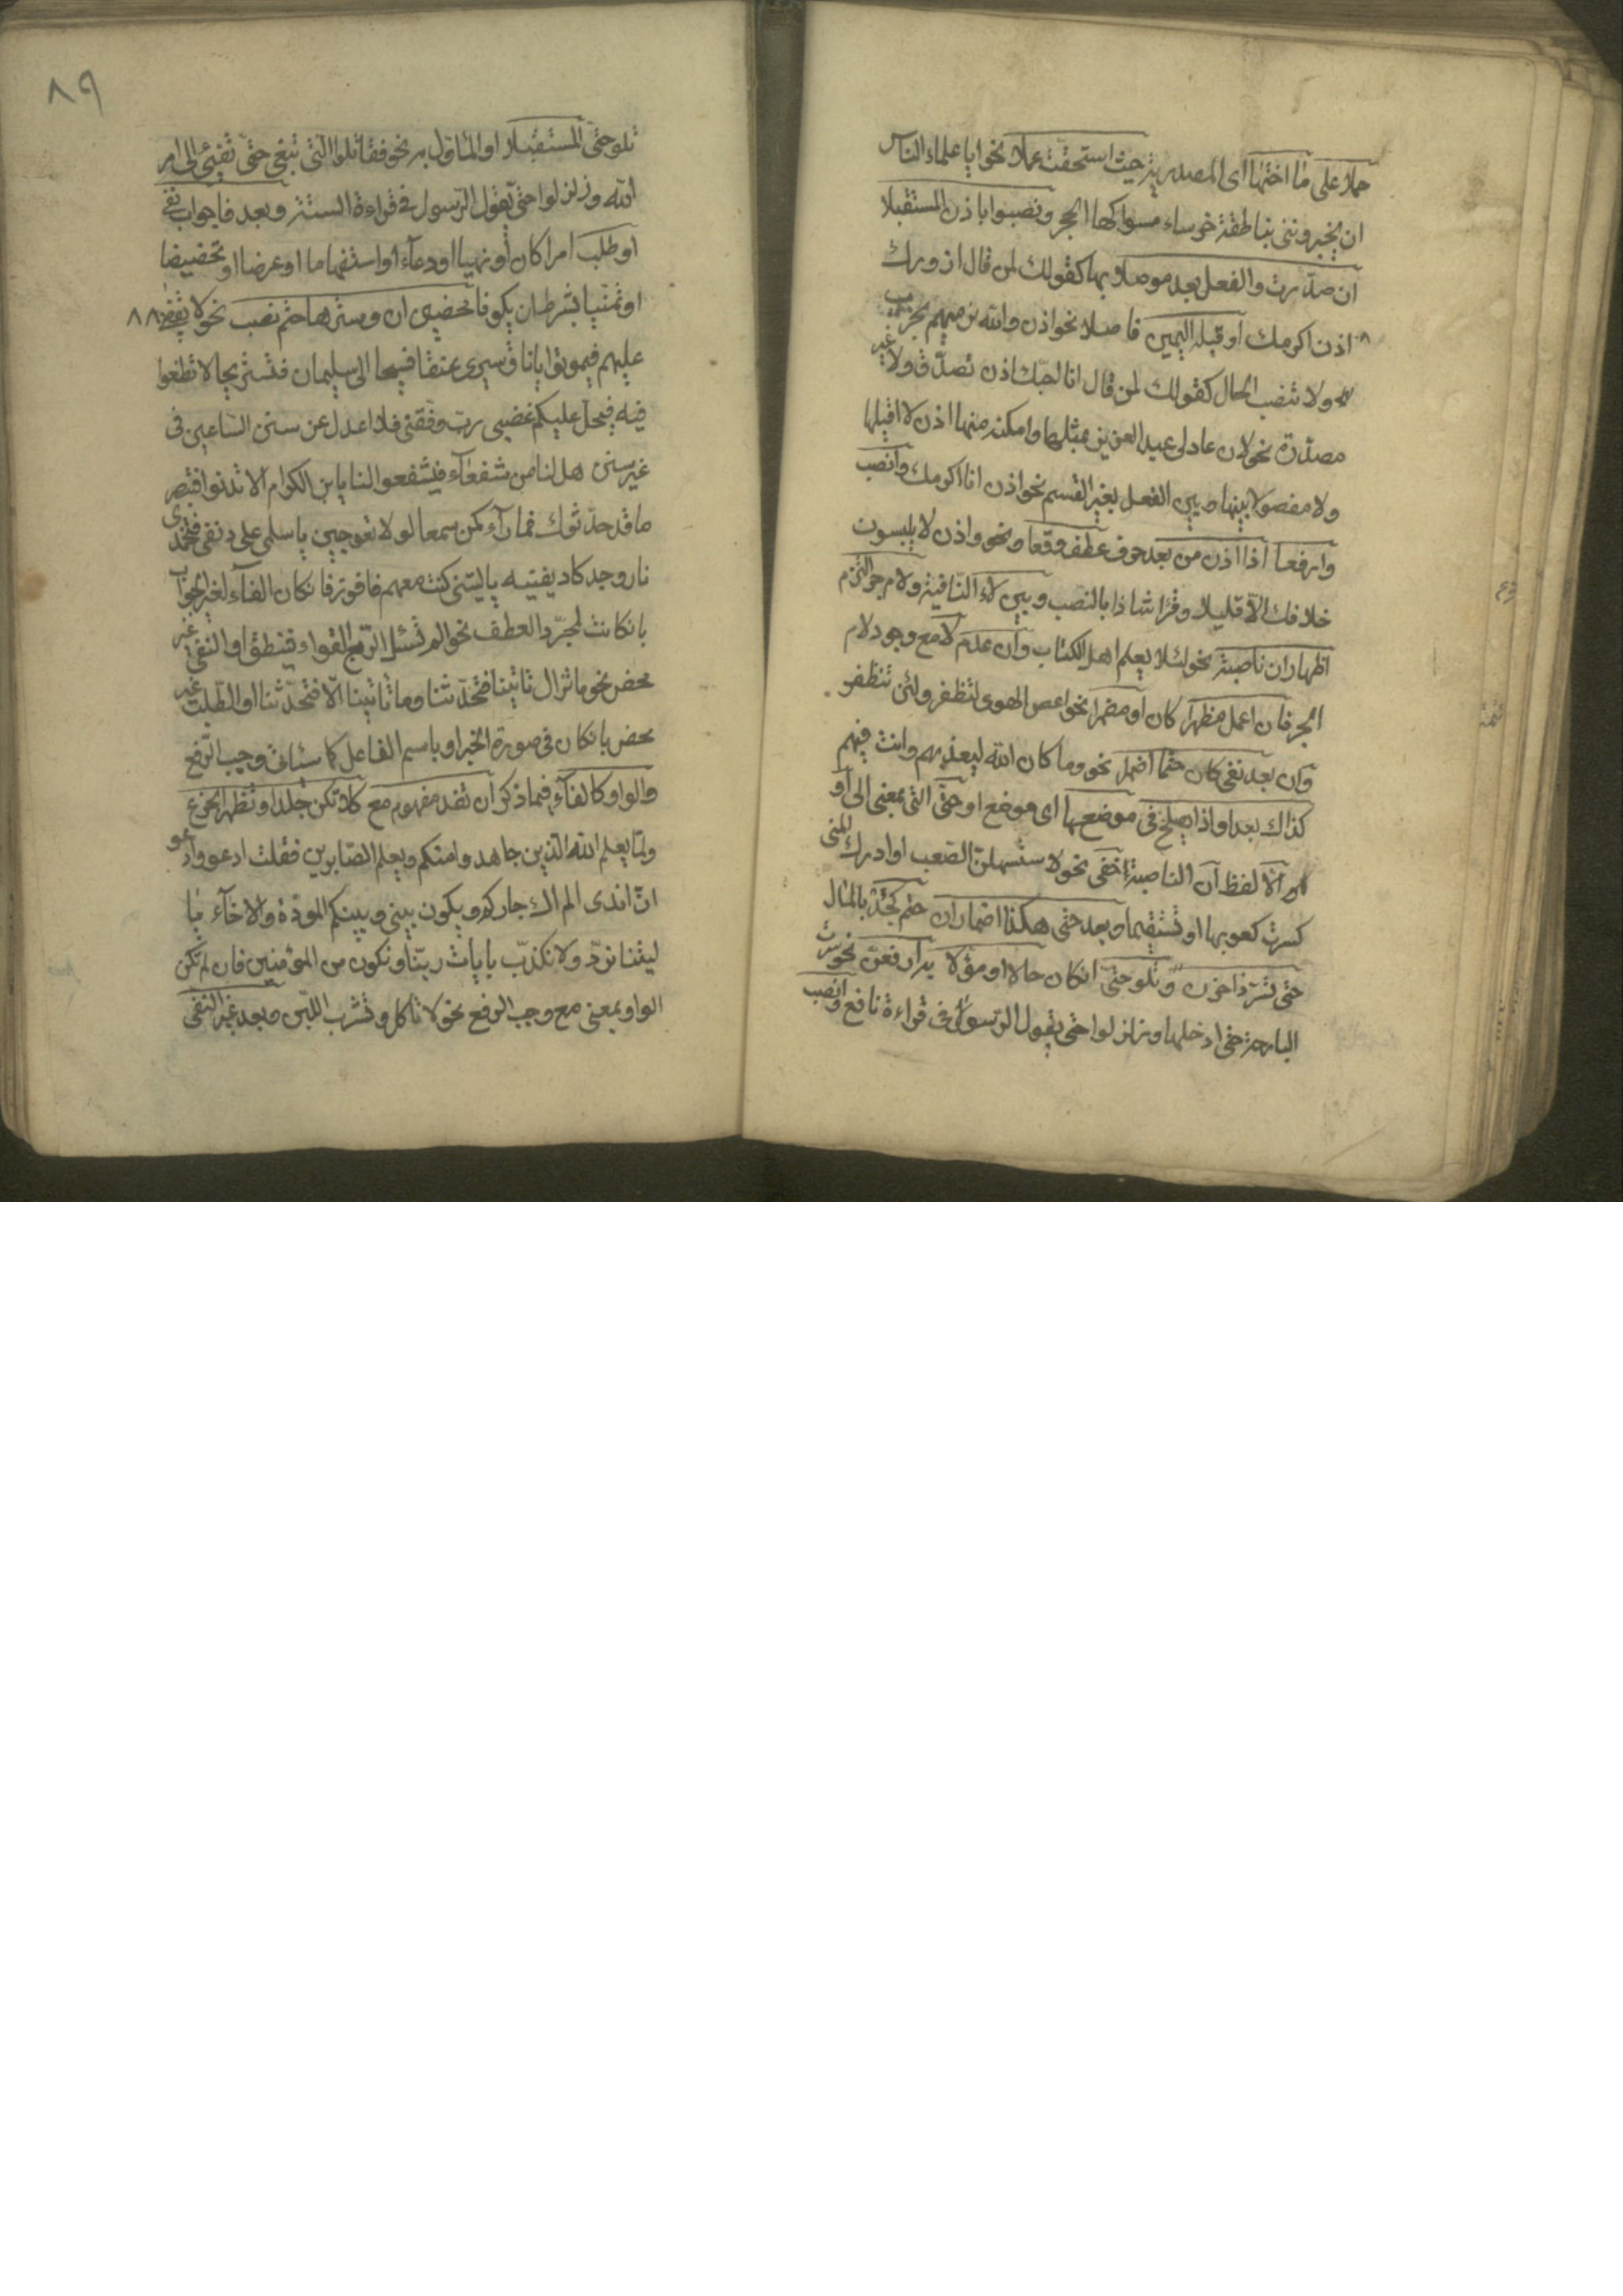 حملا على ما اختها اى المصدرية حيث استحقت عملا نحو ايا علماء الناس
ان يخبرونني بناطقة خرساء مسواكها الحجر ونصبوا باذن المستقبلا
ان صدرت والفعل بعد موصلا بها كقولك لمن قال ازورك
اذن اكرمك او قبله اليمين فاصلا نحو اذن والله نرميهم بحرب
ولا تنصب الحال كقولك لمن قال انا احبك اذن تصدق ولا غير
مصدرة نحو لان عاد لى عبد العزيز بمثلها وامكننى منها اذن لا اقيلها
ولا مفصولا بينها وبين الفعل بغير القسم نحو اذن انا اكرمك وانصب
وارفعا اذا اذن من بعد حرف عطف وقعا ونحو واذن لا يلبسون
خلافك الا قليلا وقرا شاذا بالنصب وبين لاء النافية ولام جر التزم
اظهار ان ناصبة نحو لئلا يعلم اهل الكتاب وان عدم لا مع وجود لام
الجر فان اعمل مظهرا كان او مضمرا نحو اعص الهوى لتظفر ولئن تظفر
وان بعد نفى كان حتما اضمر نحو وما كان الله ليعذبهم وانت فيهم
كذاك بعد او اذا يصلح فى موضعها اى موضع او حتى التى بمعنى الى او
الا لفظ ان الناصبة اخفى نحو لاستسهلن الصعب او ادرك المنى
كسرت كعوبها او تستقيما وبعد حتى هكذا اضمار ان حتم كجد بالمال
حتى تسر ذا حزن وتلو حتى ان كان حالا او مؤلا به ارفعن نحو سرت
البارحة حتى ادخلها وزلزلوا حتى يقول الرسول فى قراءة نافع وانصب
٨٩
تلو حتى المستقبلا او المأول به نحو فقاتلوا التى تبغى حتى تفىء الى امر
الله وزلزلوا حتى يقول الرسول فى قراءة الستة وبعد فا جواب نفى
او طلب امرا كان او نهيا او دعاء او استفهاما او عرضا او تحضيضا
او تمنيا بشرط ان يكونا محضين ان وسترها حتم نصب نحو لا يقضى ٨٨
عليهم فيموتوا يا ناق سيرى عنقا فسيحا الى سليمان فنستريحا لا تطغوا
فيه فيحل عليكم غضبى رب وفقنى فلا اعدل عن سنن الساعين فى
غير سنن هل لنا من شفعاء فيشفعوا لنا يا بن الكرام الا تدنو فتبصر
ما قد حدثوك فما راء كمن سمعا لولا تعوجين يا سلمى على دنفى فتخمدى
نار وجد كاد يفنيه يا ليتنى كنت معهم فافوز فان كان الفاء لغير الجواب
بان كانت لمجرد العطف نحو الم تسئل الربع القواء فينطق او النفى غير
محض نحو ما تزال تاتينا فتحدثنا وما تاتينا الا فتحدثنا او الطلب غير
محض بان كان فى صورة الخبر او باسم الفاعل كما سيأتى وجب الرفع
والواو كالفاء فيما ذكر ان تفد مفهوم مع كلا تكن جلدا وتظهر الجزع
ولما يعلم الله الذين جاهدوا منكم ويعلم الصابرين فقلت ادعى وادعو
ان اندى الم اك جاركم ويكون بينى وبينكم المودة والاخاء يا
ليتنا نرد ولا نكذب بايات ربنا ونكون من المؤمنين فان لم تكن
الواو بمعنى مع وجب الرفع نحو لا تاكل وتشرب اللبن وبعد غير النفى